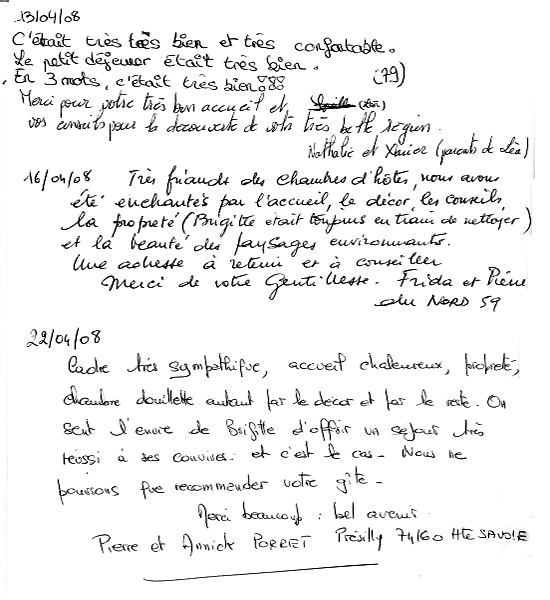 13/04/08
C'était très très bien et très confortable.
Le petit déjeuner était très bien.
En 3 mots, c'était très bien!!! (79)
Merci pour votre très bon accueil et (Léa)
vos conseils pour la découverte de votre très belle région.
Nathalie et Xavier (parents de Léa)
16/04/08 Très friands des chambres d'hôtes, nous avons
été enchantés par l'accueil, le décor, les conseils,
la propreté (Brigitte était toujours en train de nettoyer)
et la beauté des paysages environnants.
Une adresse à retenir et à conseiller
Merci de votre Gentillesse. Frida et Pierre
du NORD 59
22/04/08
Cadre très sympathique, accueil chaleureux, propreté,
chambre douillette autant par le décor et par le reste. On
sent l'envie de Brigitte d'offrir un séjour très
réussi à ses convives. et c'est le cas - Nous ne
pouvons que recommander votre gîte -
Merci beaucoup : bel avenir
Pierre et Annick PORRET Présilly 74160 Hte SAVOIE